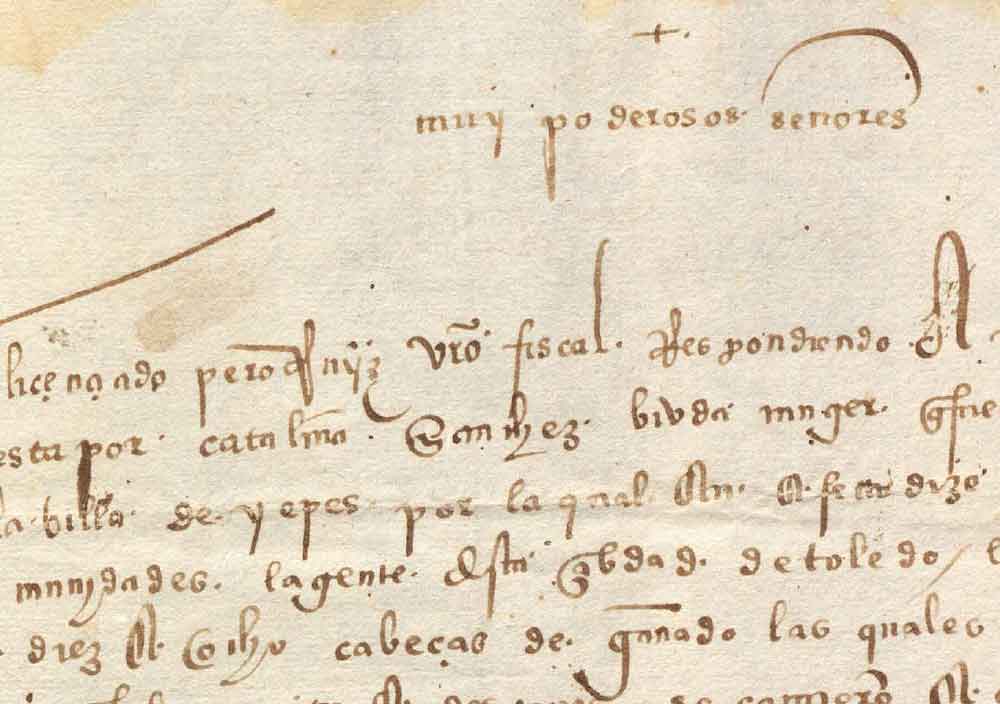 muy poderosos señores
liçençiado pero Ruyz vro fiscal Respondiendo A
esta por catalina Sanchez bivda muger q fue
la billa de yepes por la qual En efecto dize
munydades la gente desta çibdad de toledo
diez E ocho cabeças de ganado las quales